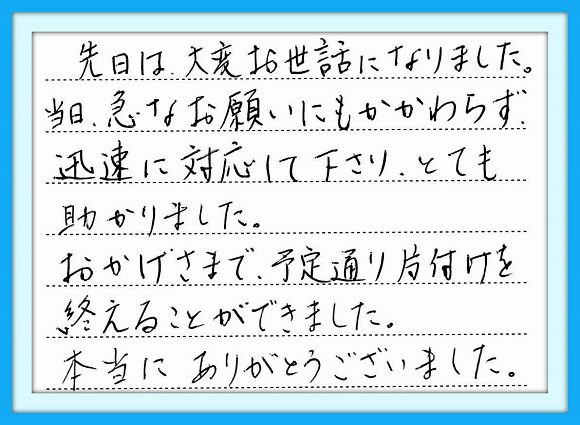 先日は、大変お世話になりました。
当日、急なお願いにもかかわらず、
迅速に対応して下さり、とても
助かりました。
おかげさまで、予定通り片付けを
終えることができました。
本当にありがとうございました。